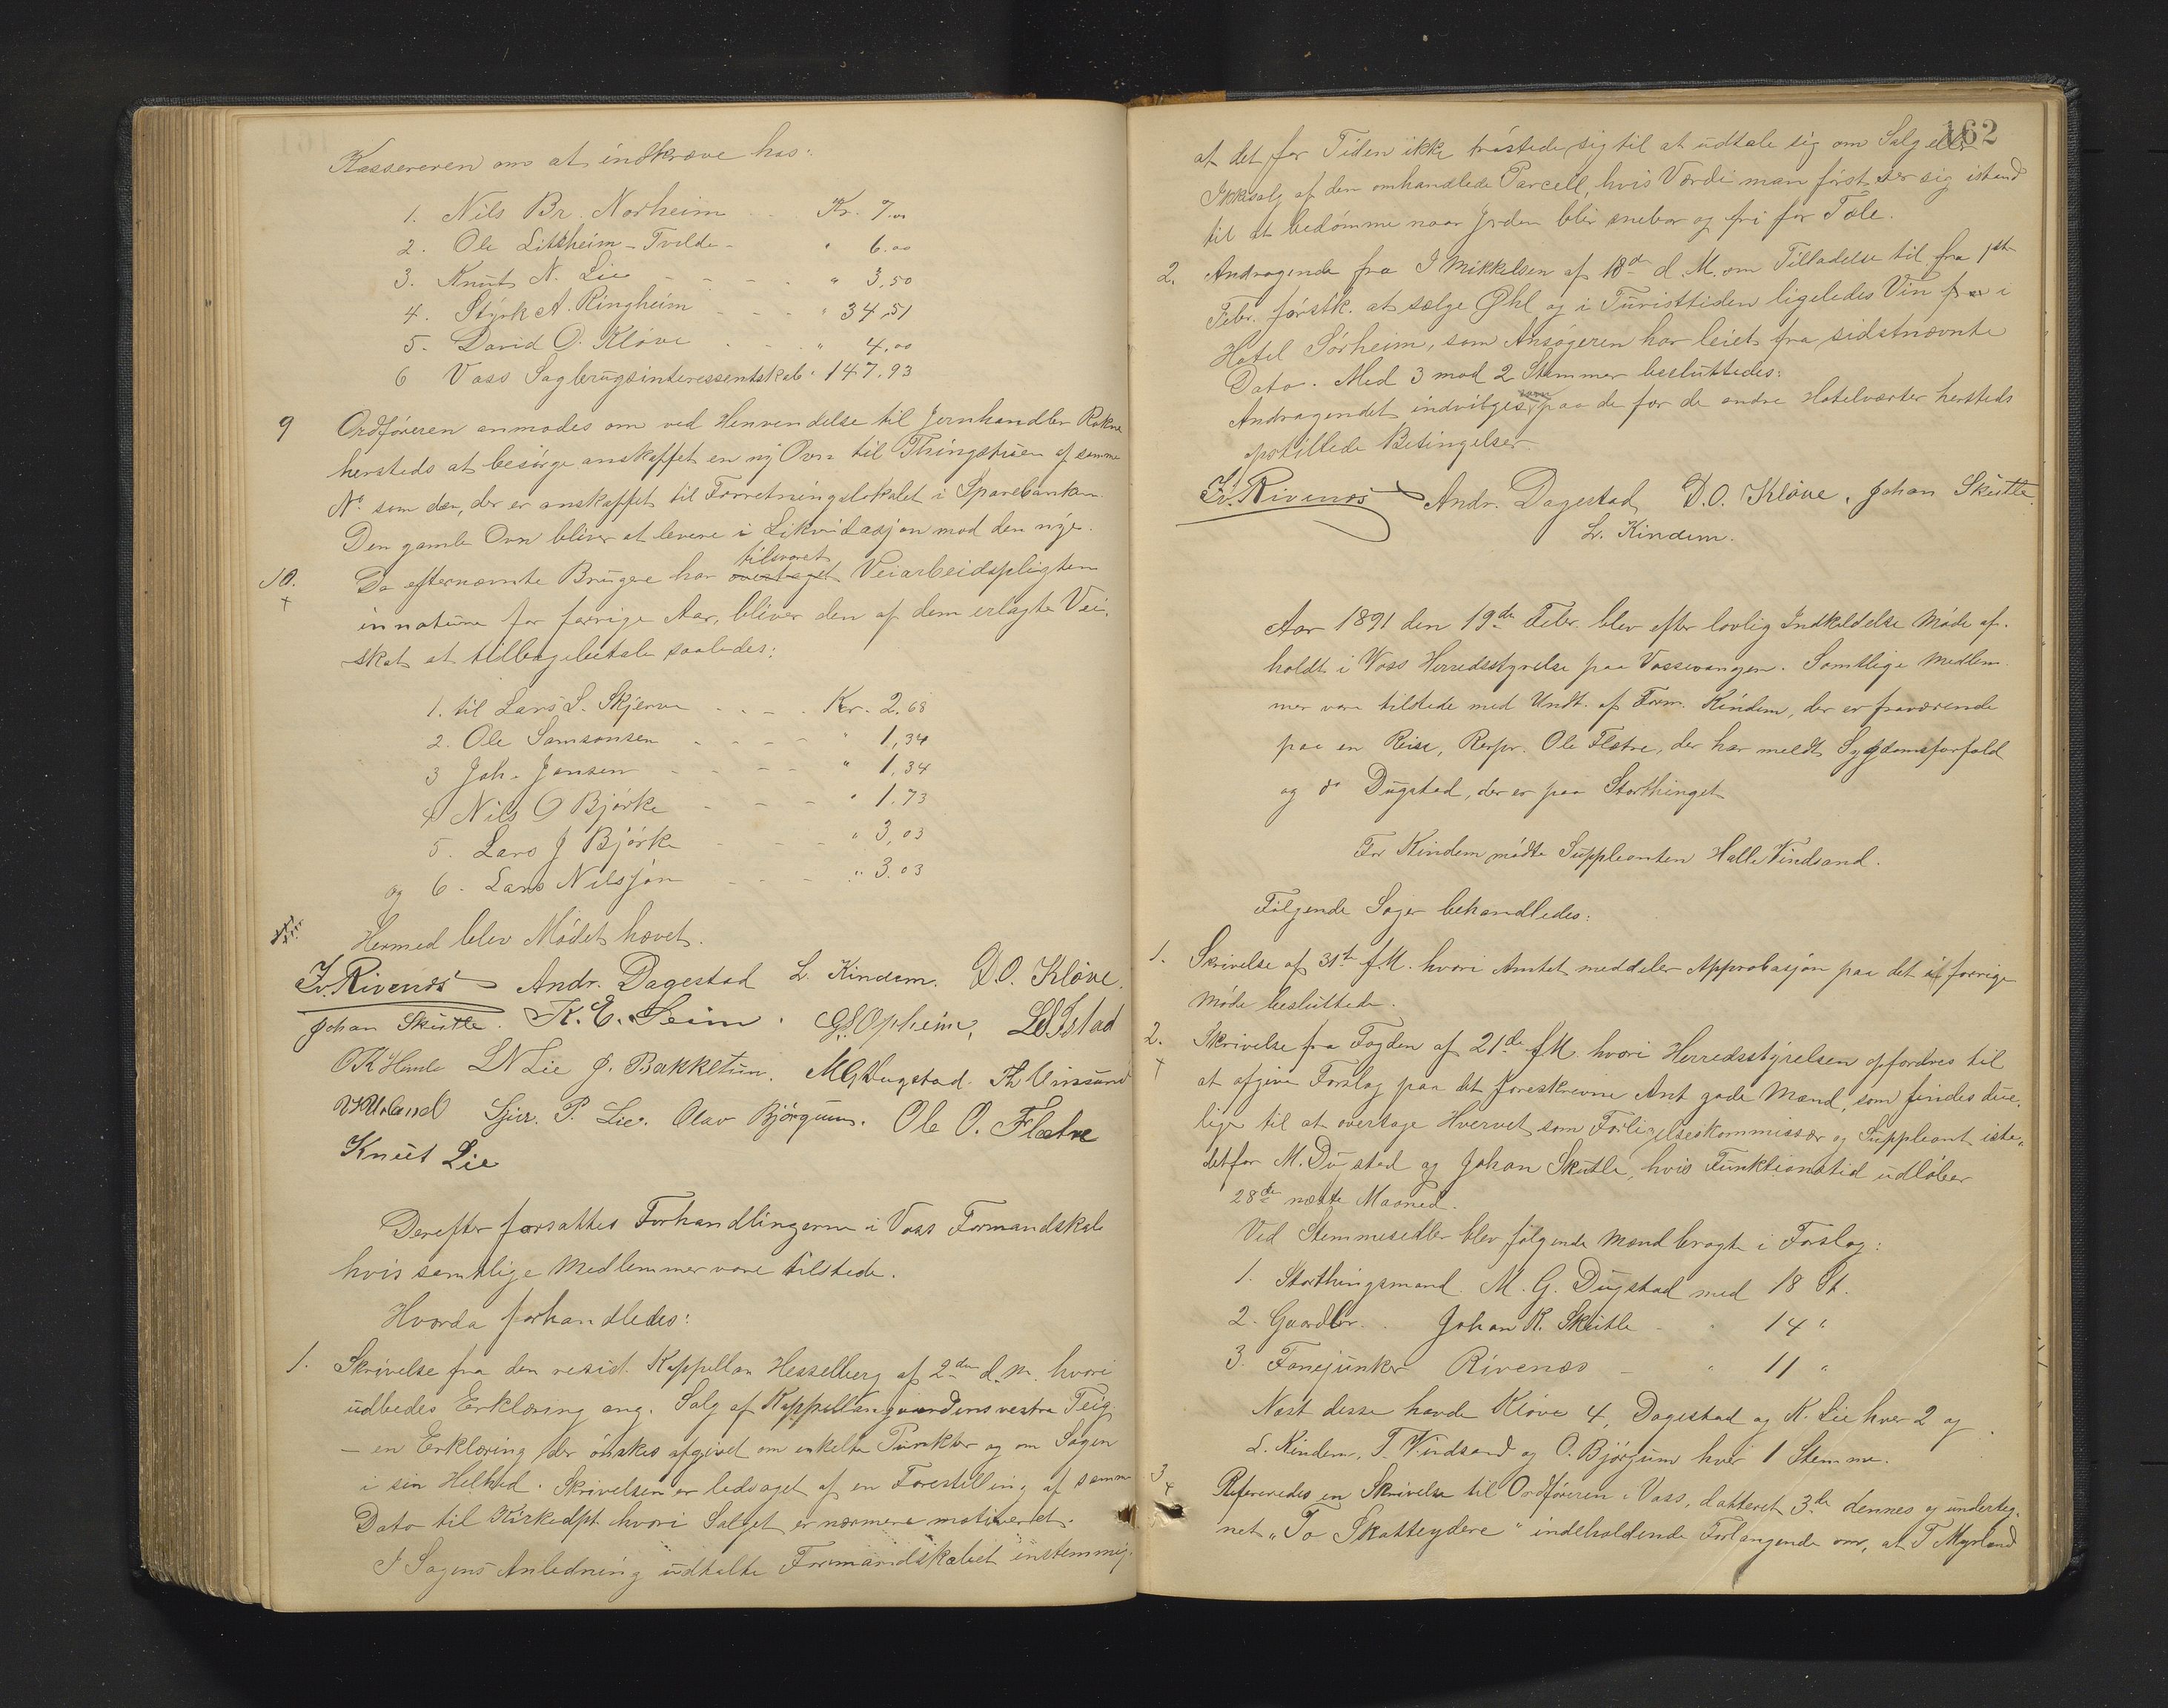 Kassereren om at indkræve hos:
1. Nils Br. Norheim Kr. 7.00
2. Ole Litsheim-Tvilde " 6.00
3. Knut N. Lie " 3,50
4. Styrk A. Ringheim " 34,51
5. David O. Kløve " 4,00
6 Voss Sagbrugsinteressentskab " 147.93
9 Ordføreren anmodes om ved Henvendelse til Jernhandler Rokne
hersteds at besørge anskaffet en ny Ovn til Thingstuen af samme
No. som den, der er anskaffet til Forretningslokalet i Sparebanken.
Den gamle Ovn bliver at levere i Likvidasjon mod den nye.
10. Da efternævnte Brugere har overtaget tilsvaret Veiarbeidspligten
in natura for forrige Aar, bliver den af dem erlagte Vei-
skat at tilbagebetale saaledes:
1. til Lars L. Skjerve Kr. 2.68
2. Ole Samsonsen " 1,34
3 Joh. Jansen " 1,34
4 Nils O Bjørke " 1.73
5. Lars J Bjørke " 3,03
og 6. Lars Nilsjøn " 3.03
Hermed blev Mødet hævet.
Iv. Rivenæs Andr. Dagestad L. Kindem. D.O. Kløve.
Johan Skutle. K. E. Seim. G.S. Opheim,
LN Lie J. Bakketun. M G Dugstad.
Sjur. P. Lie. Olav Bjørgum. Ole O. Flatre
Knut Lie
Derefter forsattes Forhandlingerne i Voss Formandskab
hvis samtlige Medlemmer vare tilstede.
Hvorda forhandledes:
1. Skrivelse fra den resid. Kappellan Hesselberg af 2den d.M. hvori
udbedes Erklæring ang. Salg af Kappellangaardens vestra Teig
– en Erklæring der ønskes afgivet om enkelte Punkter og om Sagen
i sin Helhed. Skrivelsen er ledsaget af en Forestilling af samme
Dato til Kirkedpt. hvori Salget er nærmere motiveret.
I Sagens Anledning udtalte Formandskabet enstemmig
162
at det for Tiden ikke trøstede sig til at udtale sig om Salg eller
Ikkesalg af den omhandlede Parcell, hvis Værdi man først ser sig istand
til at bedømme naar Jorden blir snebar og fri for Tæle.
2. Andragende fra I Mikkelsen af 18de d. M. om Tilladelse til fra 1ste
Febr. førstk. at sælge Øhl og i Turisttiden ligeledes Vin fra i
Hotel Sørheim, som Ansøgeren har leiet fra sidstnævnte
Dato. Med 3 mod 2 Stemmer besluttedes:
Andragendet indvilges paa de for de andre Hotelværter hersteds
opstillede Betingelser.
Iv. Rivenæs Andr. Dagestad D.O. Kløve. Johan Skutle.
L. Kindem.
Aar 1891 den 19de Febr. blev efter lovlig Indkaldelse Møde af-
holdt i Voss Herredsstyrelse paa Vossevangen. Samtlige Medlem-
mer vare tilstede med Undt. af Form. Kindem, der er fraværende
paa en Reise, Repr. Ole Flatre, der har meldt Sygdomsforfald
og do Dugstad, der er paa Storthinget.
For Kindem mødte Suppleanten Halle Vindsand.
Følgende Sager behandledes:
1. Skrivelse af 31te f.M. hvori Amtet meddeler Approbasjon paa det i forrige
Møde besluttede.
2. Skrivelse fra Fogden af 21de f.M. hvori Herredsstyrelsen opfordres til
at afgive Forslag paa det foreskrevne Ant gode Mænd, som findes due-
lige til at overtage Hvervet som Forligelseskommissær og Suppleant iste-
detfor M. Dugstad og Johan Skutle, hvis Funktionstid udløber
28de næste Maaned.
Ved Stemmesedler blev følgende Mænd bragte i Forslag:
1. Storthingsmand M. G. Dugstad med 18 St.
2. Gaardbr. Johan R. Skutle " 14 "
3. Fanejunker Rivenæs " 11 "
Næst disse havde Kløve 4, Dagestad og K. Lie hver 2 og
L. Kindem, T. Vindsand og O. Bjørgum hver 1 Stemme.
3 Refereredes en Skrivelse til Ordføreren i Voss, datteret 3de dennes og underteg-
net "To Skatteydere" indeholdende Forlangende om, at T Myrland